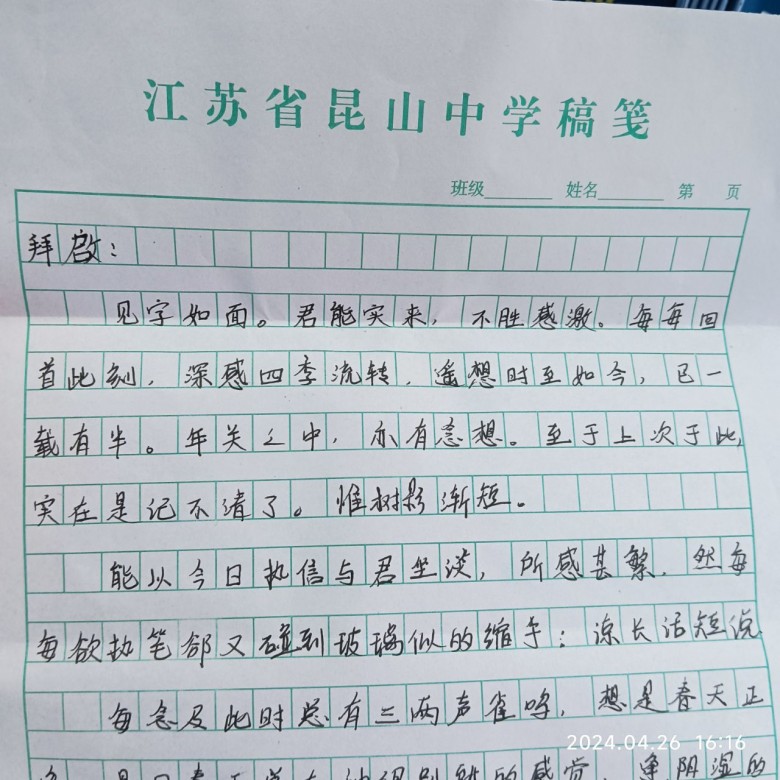 江苏省昆山中学稿笺
班级 姓名 第 页
拜启：
见字如面。君能实来，不胜感激。每每回
首此刻，深感四季流转，遥想时至如今，已一
载有半。年关之中，亦有念想。至于上次于此，
实在是记不清了。惟树影渐短。
能以今日执信与君坐谈，所感甚繁，然每
每欲执笔却又碰到玻璃似的缩手；谅长话短说
每念及此时总有三两声雀鸣，想是春天正
的感觉，连阴湿的
2024.04.26 16:16